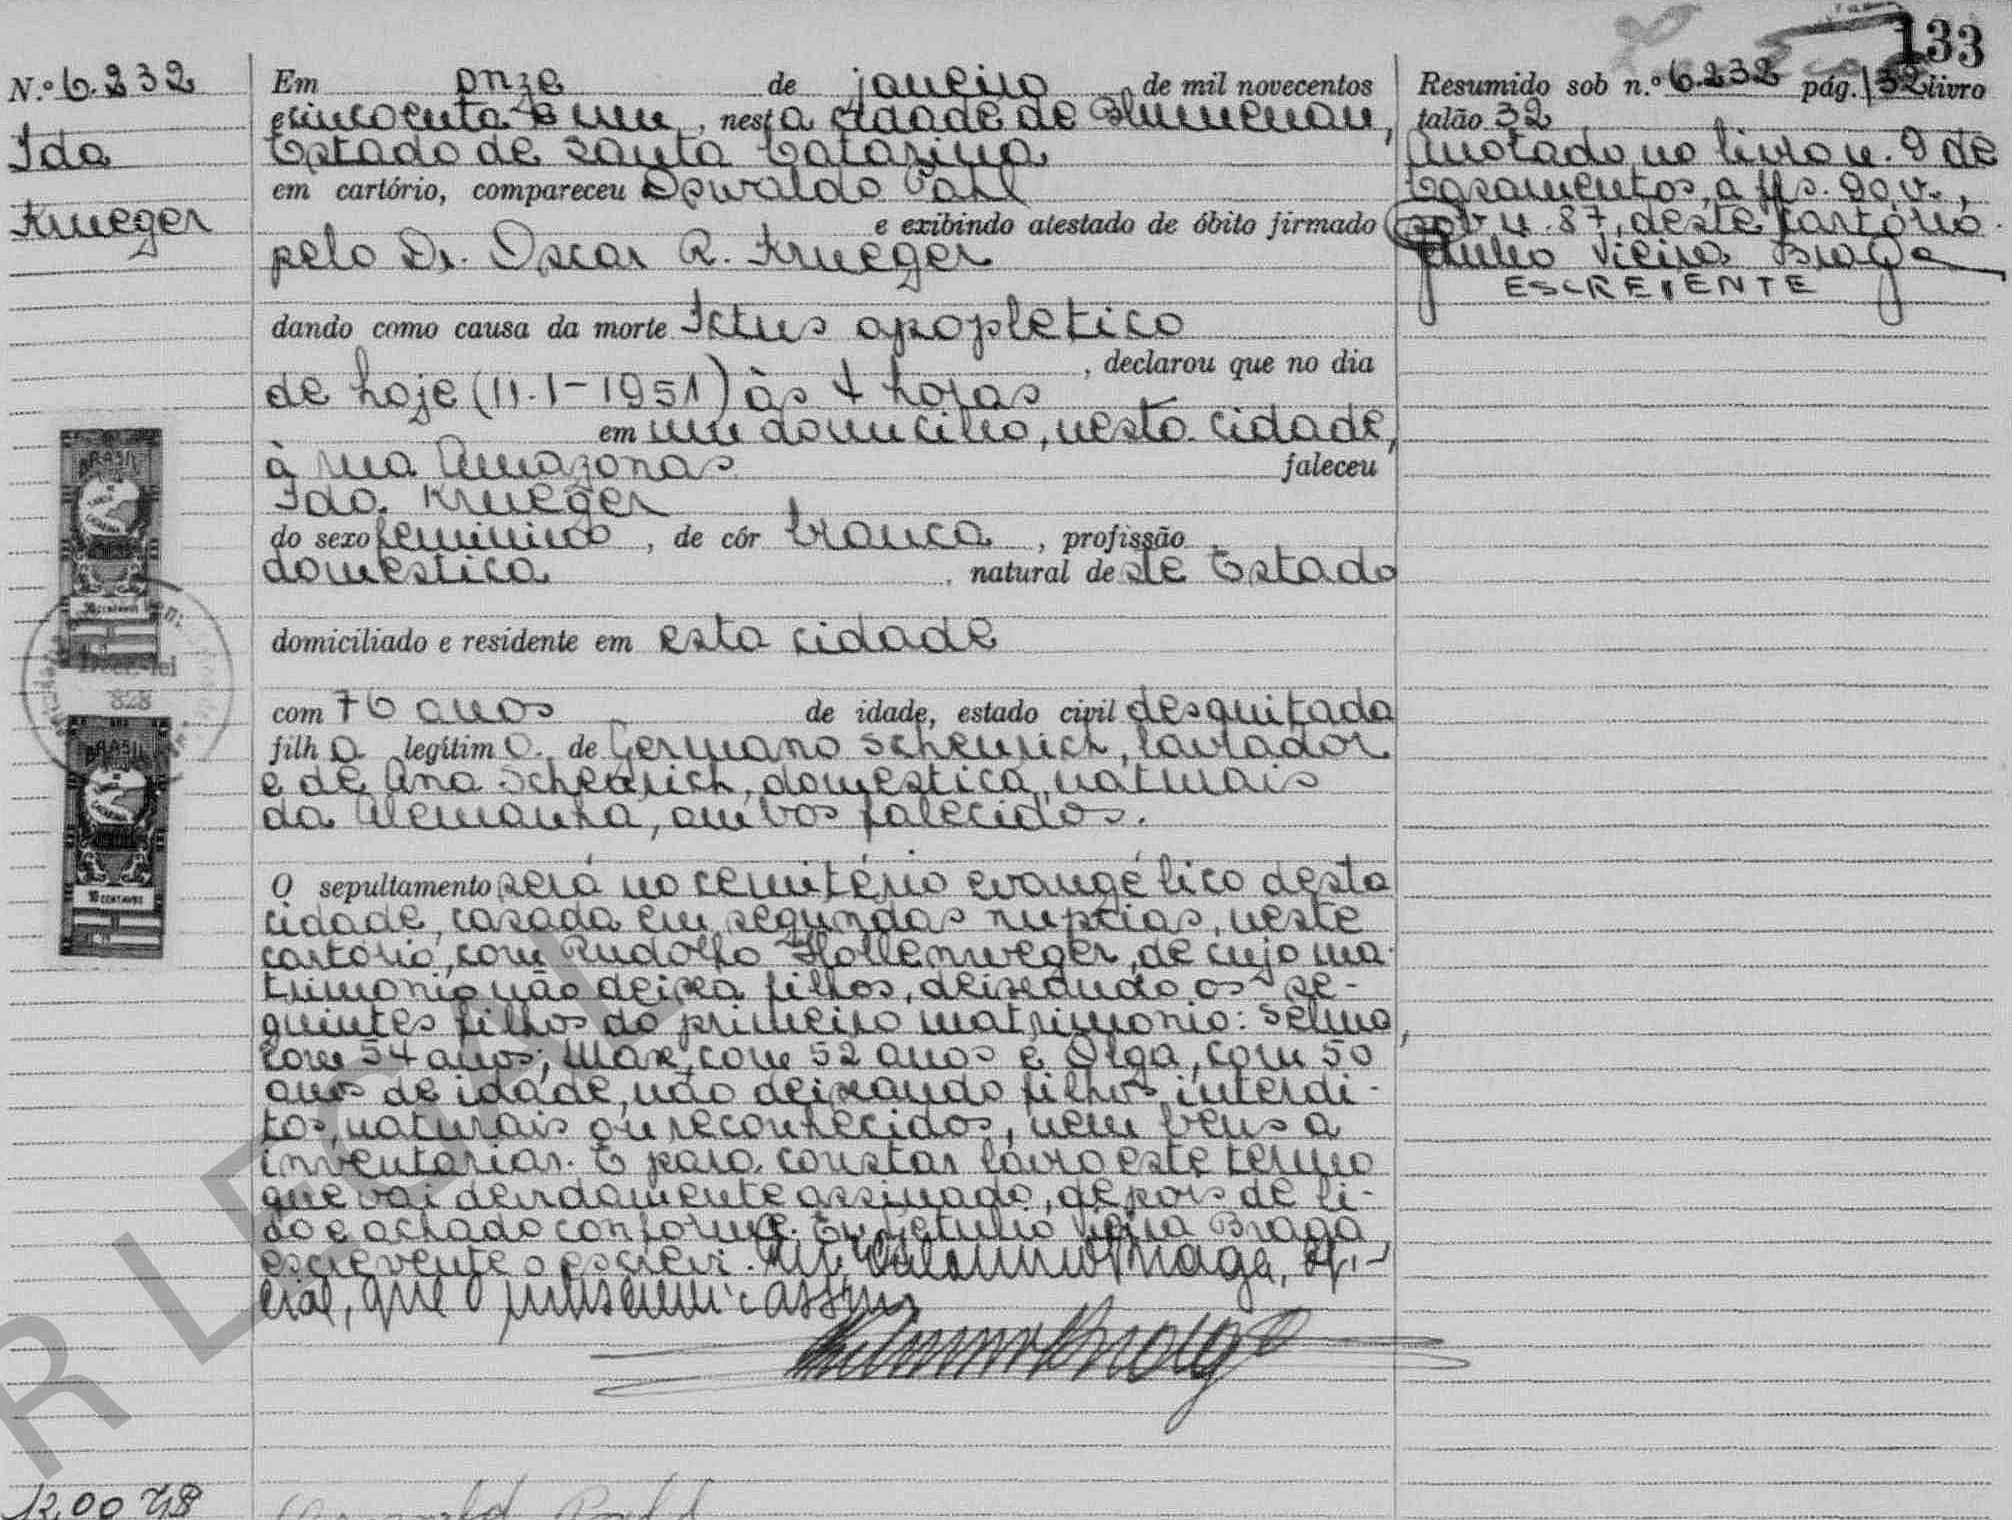 133
N.º 6.232
Ida
Krueger
Em onze de janeiro de mil novecentos
e cincoenta e um, nesta cidade de Blumenau,
Estado de Santa Catarina
em cartório, compareceu Oswaldo Pahl
e exibindo atestado de óbito firmado
pelo Dr. Oscar R. Krueger
dando como causa da morte Ictus apopletico
, declarou que no dia
de hoje (11-1-1951) às 4 horas
em um domicilio, nesta cidade,
à rua Amazonas faleceu
Ida Krueger
do sexo feminino, de côr branca, profissão
domestica, natural deste Estado
domiciliado e residente em esta cidade
com 76 anos de idade, estado civil desquitada
filha legítima de Germano Scheurich, lavrador
e de Ana Scheurich, domestica, naturais
da Alemanha, ambos falecidos.
O sepultamento será no cemitério evangélico desta
cidade, casada em segundas nupcias, neste
cartório, com Rudolfo Hollenweger, de cujo ma-
trimonio não deixa filhos, deixando os se-
guintes filhos do primeiro matrimonio: Selma,
com 54 anos; Max, com 52 anos e Olga, com 50
anos de idade, não deixando filhos interdi-
tos, naturais ou reconhecidos, nem bens a
inventariar. E para constar lavro este termo
que vai devidamente assinado, depois de li-
do e achado conforme. Eu, Getulio Vieira Braga,
escrevente o escrevi. Braga, ofi-
cial, que o assino
Braga
Resumido sob n.º 6.232 pág. 132 livro
talão 32
Anotado no livro n. 9 de
Casamentos, a fls. 90 v.,
sob n. 87, deste cartório.
Getulio Vieira Braga
ESCREVENTE
BRASIL
Decr. lei
828
BRASIL
CENTAVOS
12,00
R LEGAL